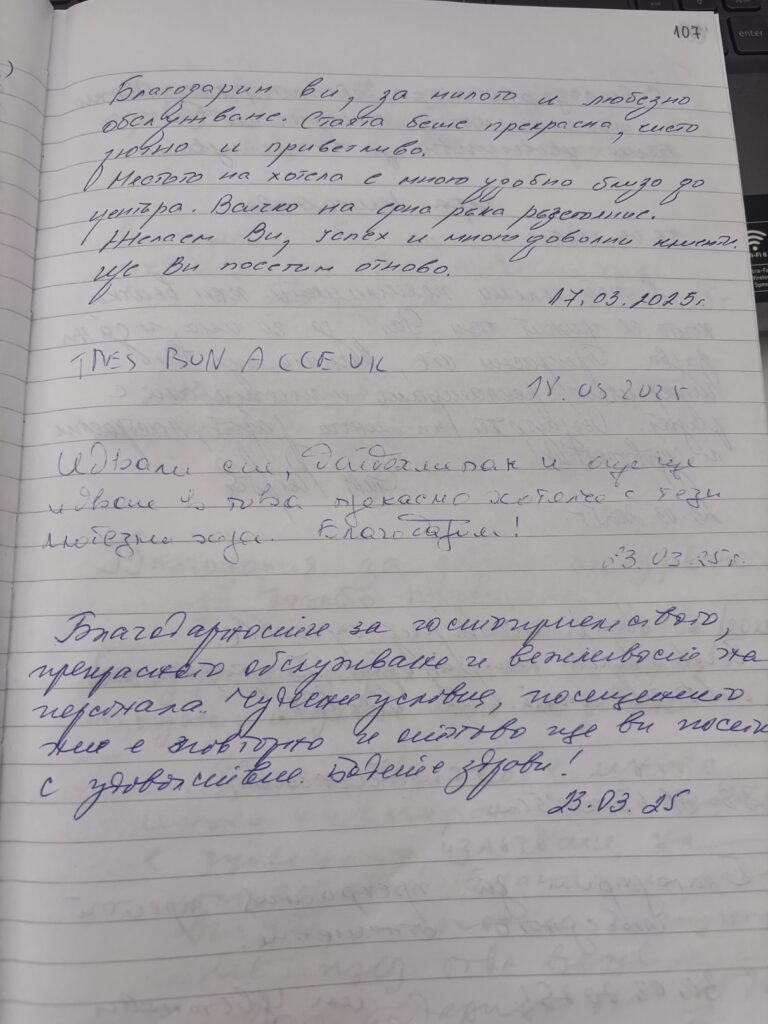 107
Благодарим ви, за милото и любезно
обслужване. Стаята беше прекрасна, чисто
уютно и приветливо.
Мястото на хотела е много удобно близо до
центъра. Всичко на една ръка разстояние.
Желаем Ви, успех и много доволни клиенти.
ще Ви посетим отново.
17.03.2025г.
TRES BON ACCEUIL
18.03.2025
Идвали сме, и още ще
идваме в това прекасно хотелче с тези
любезни хора. Благодарим!
23.03.25г.
Благодарности за гостоприемството,
прекрасното обслужване и вежливост на
персонала. Чудесни условия, посещението
ни е повторно и отново ще ви посети
с удоволствие. Бъдете здрави!
23.03.25
enter